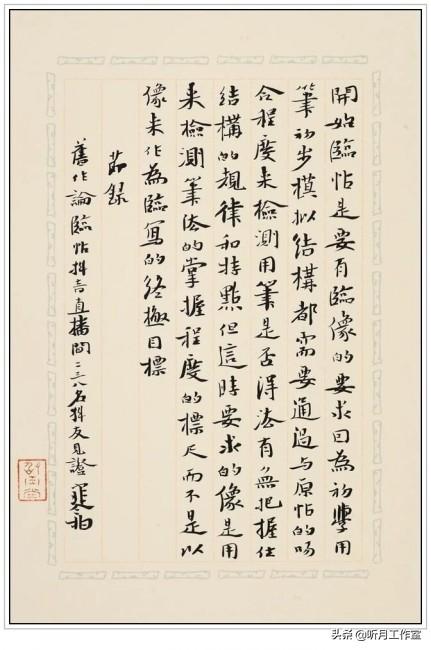 開始臨帖是要有臨像的要求因為初學用
筆初步模拟结構都需要通過与原帖的吻
合程度来檢測用筆是否得法有無把握住
结構的規律和特點但這時要求的像是用
来檢測筆法的掌握程度的標尺而不是以
像来作為臨寫的终極目標
節録
舊作論臨帖抖音直播間二三八名抖友見證
头条 @听月工作室